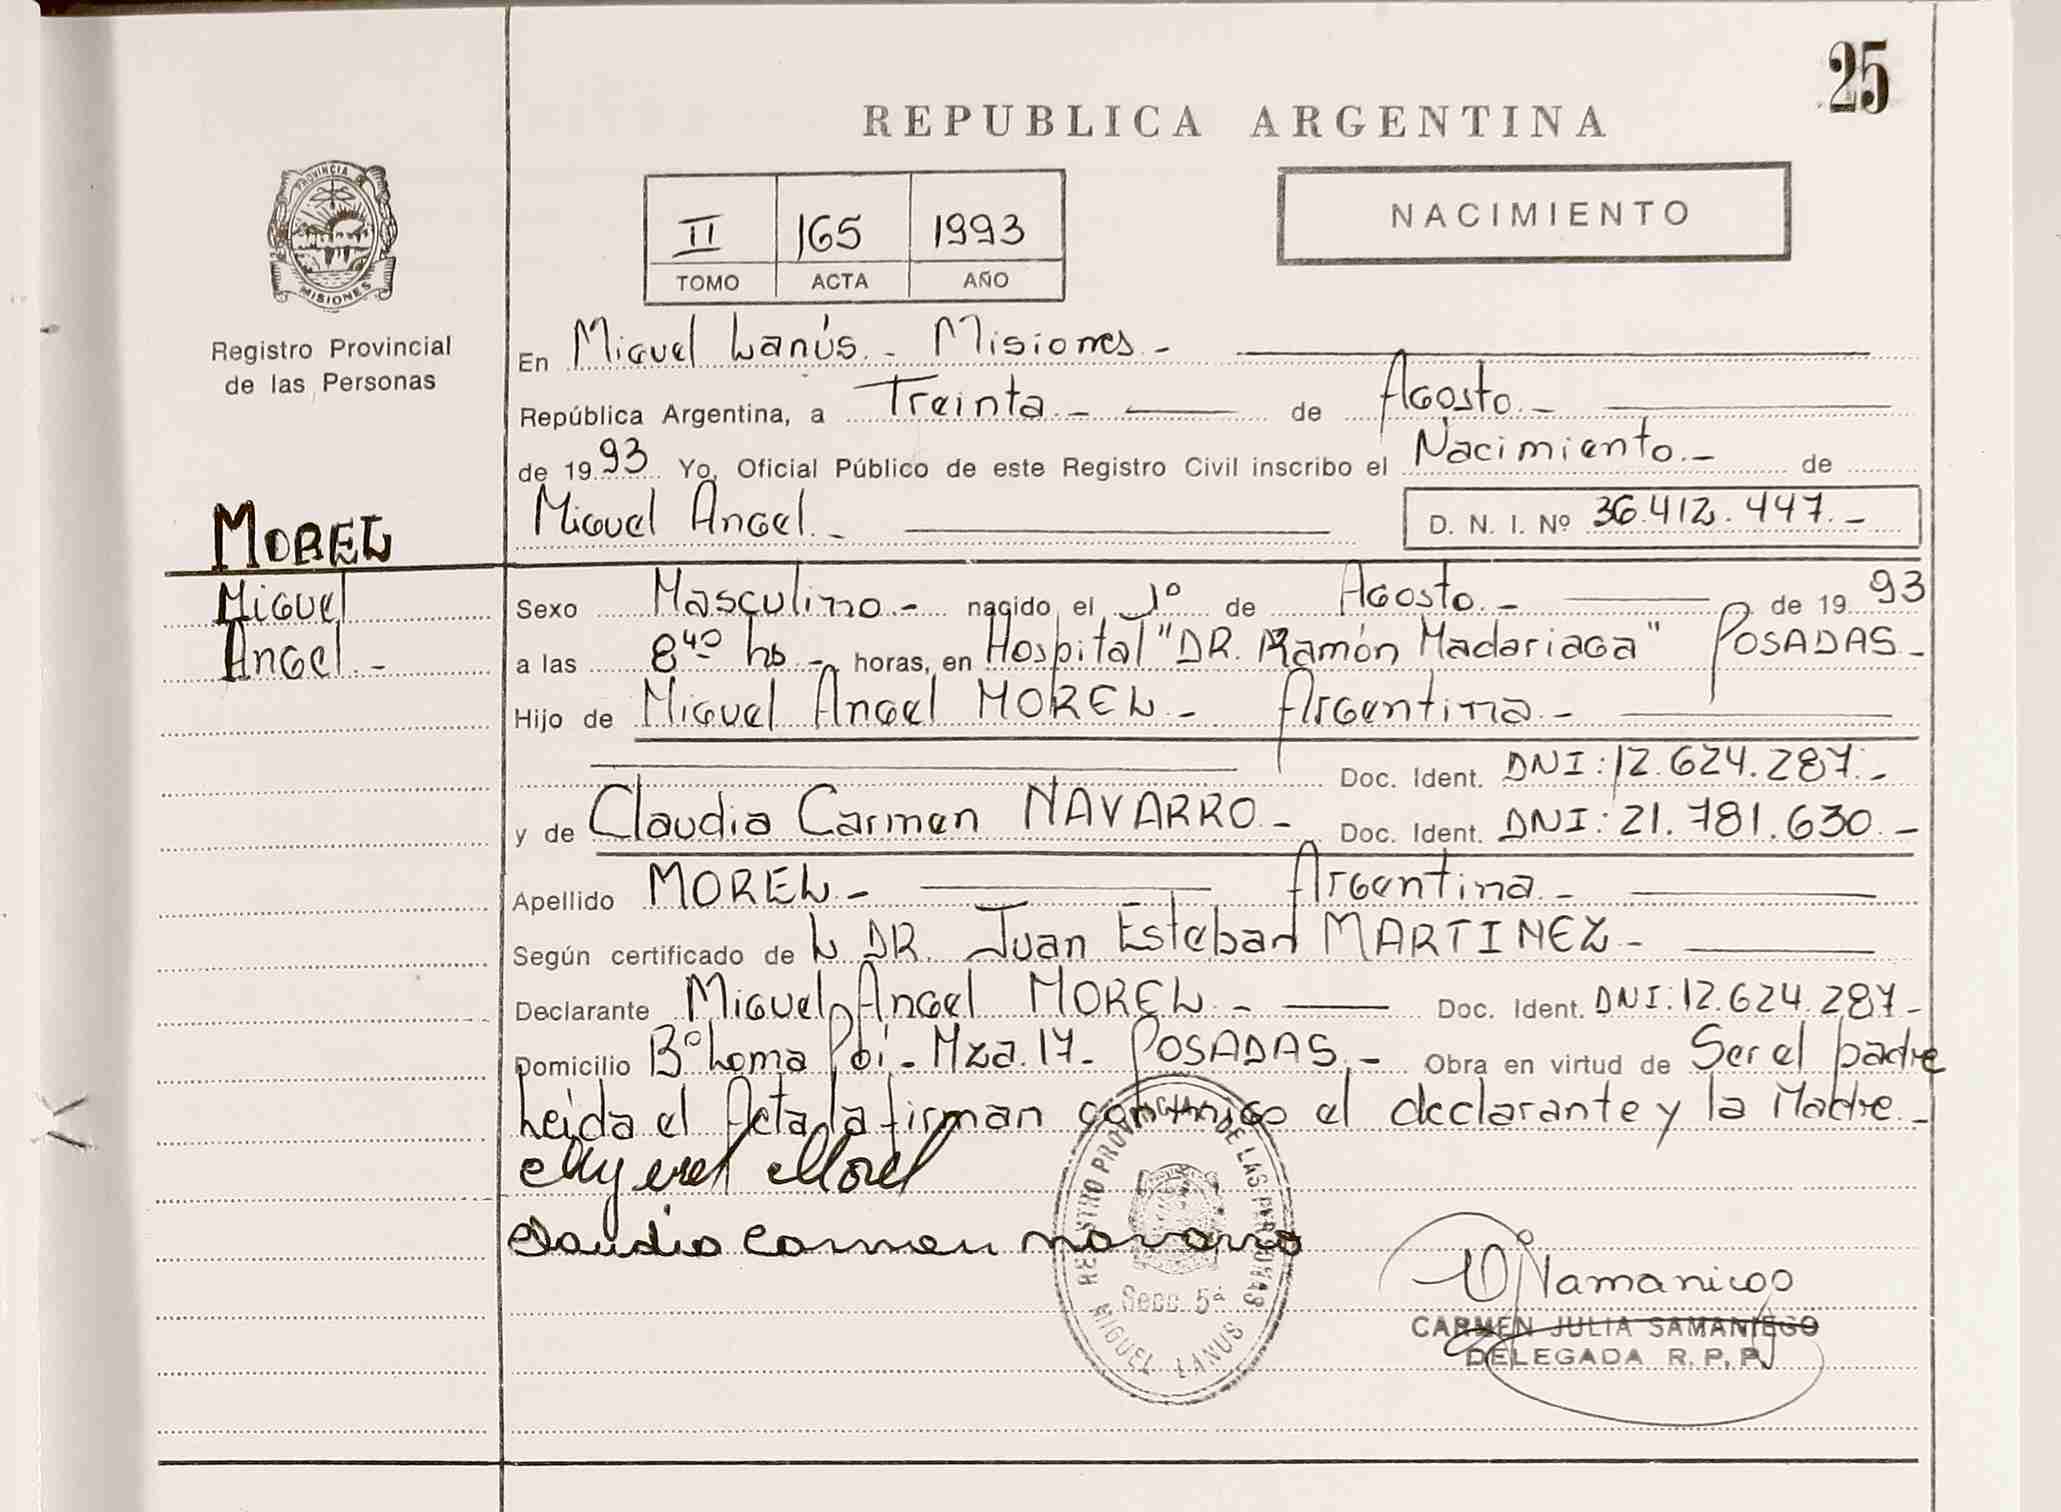 25
REPUBLICA ARGENTINA
PROVINCIA
MISIONES
Registro Provincial
de las Personas
II 165 1993
TOMO ACTA AÑO
NACIMIENTO
En Miguel Lanús.- Misiones.-
República Argentina, a Treinta.- de Agosto.-
de 1993 Yo, Oficial Público de este Registro Civil inscribo el Nacimiento.- de
Miguel Angel.- D. N. I. Nº 36.412.447.-
MOREL
Miguel
Angel.-
Sexo Masculino.- nacido el 1º de Agosto.- de 1993
a las 8⁴⁰ hs.- horas, en Hospital "DR. Ramón Madariaga" POSADAS.-
Hijo de Miguel Angel MOREL.- Argentina.-
Doc. Ident. DNI: 12.624.287.-
y de Claudia Carmen NAVARRO.- Doc. Ident. DNI: 21.781.630.-
Apellido MOREL.- Argentina.-
Según certificado de L DR. Juan Esteban MARTINEZ.-
Declarante Miguel Angel MOREL.- Doc. Ident. DNI: 12.624.287.-
Domicilio Bº Loma Poi.- Mza. 17.- POSADAS.- Obra en virtud de Ser el padre
Leida el Acta la firman conmigo el declarante y la Madre.-
Miguel Morel
Claudia Carmen Navarro
REGISTRO PROVINCIAL DE LAS PERSONAS
Secc. 5ª
MIGUEL LANUS
CARMEN JULIA SAMANIEGO
DELEGADA R. P. P.